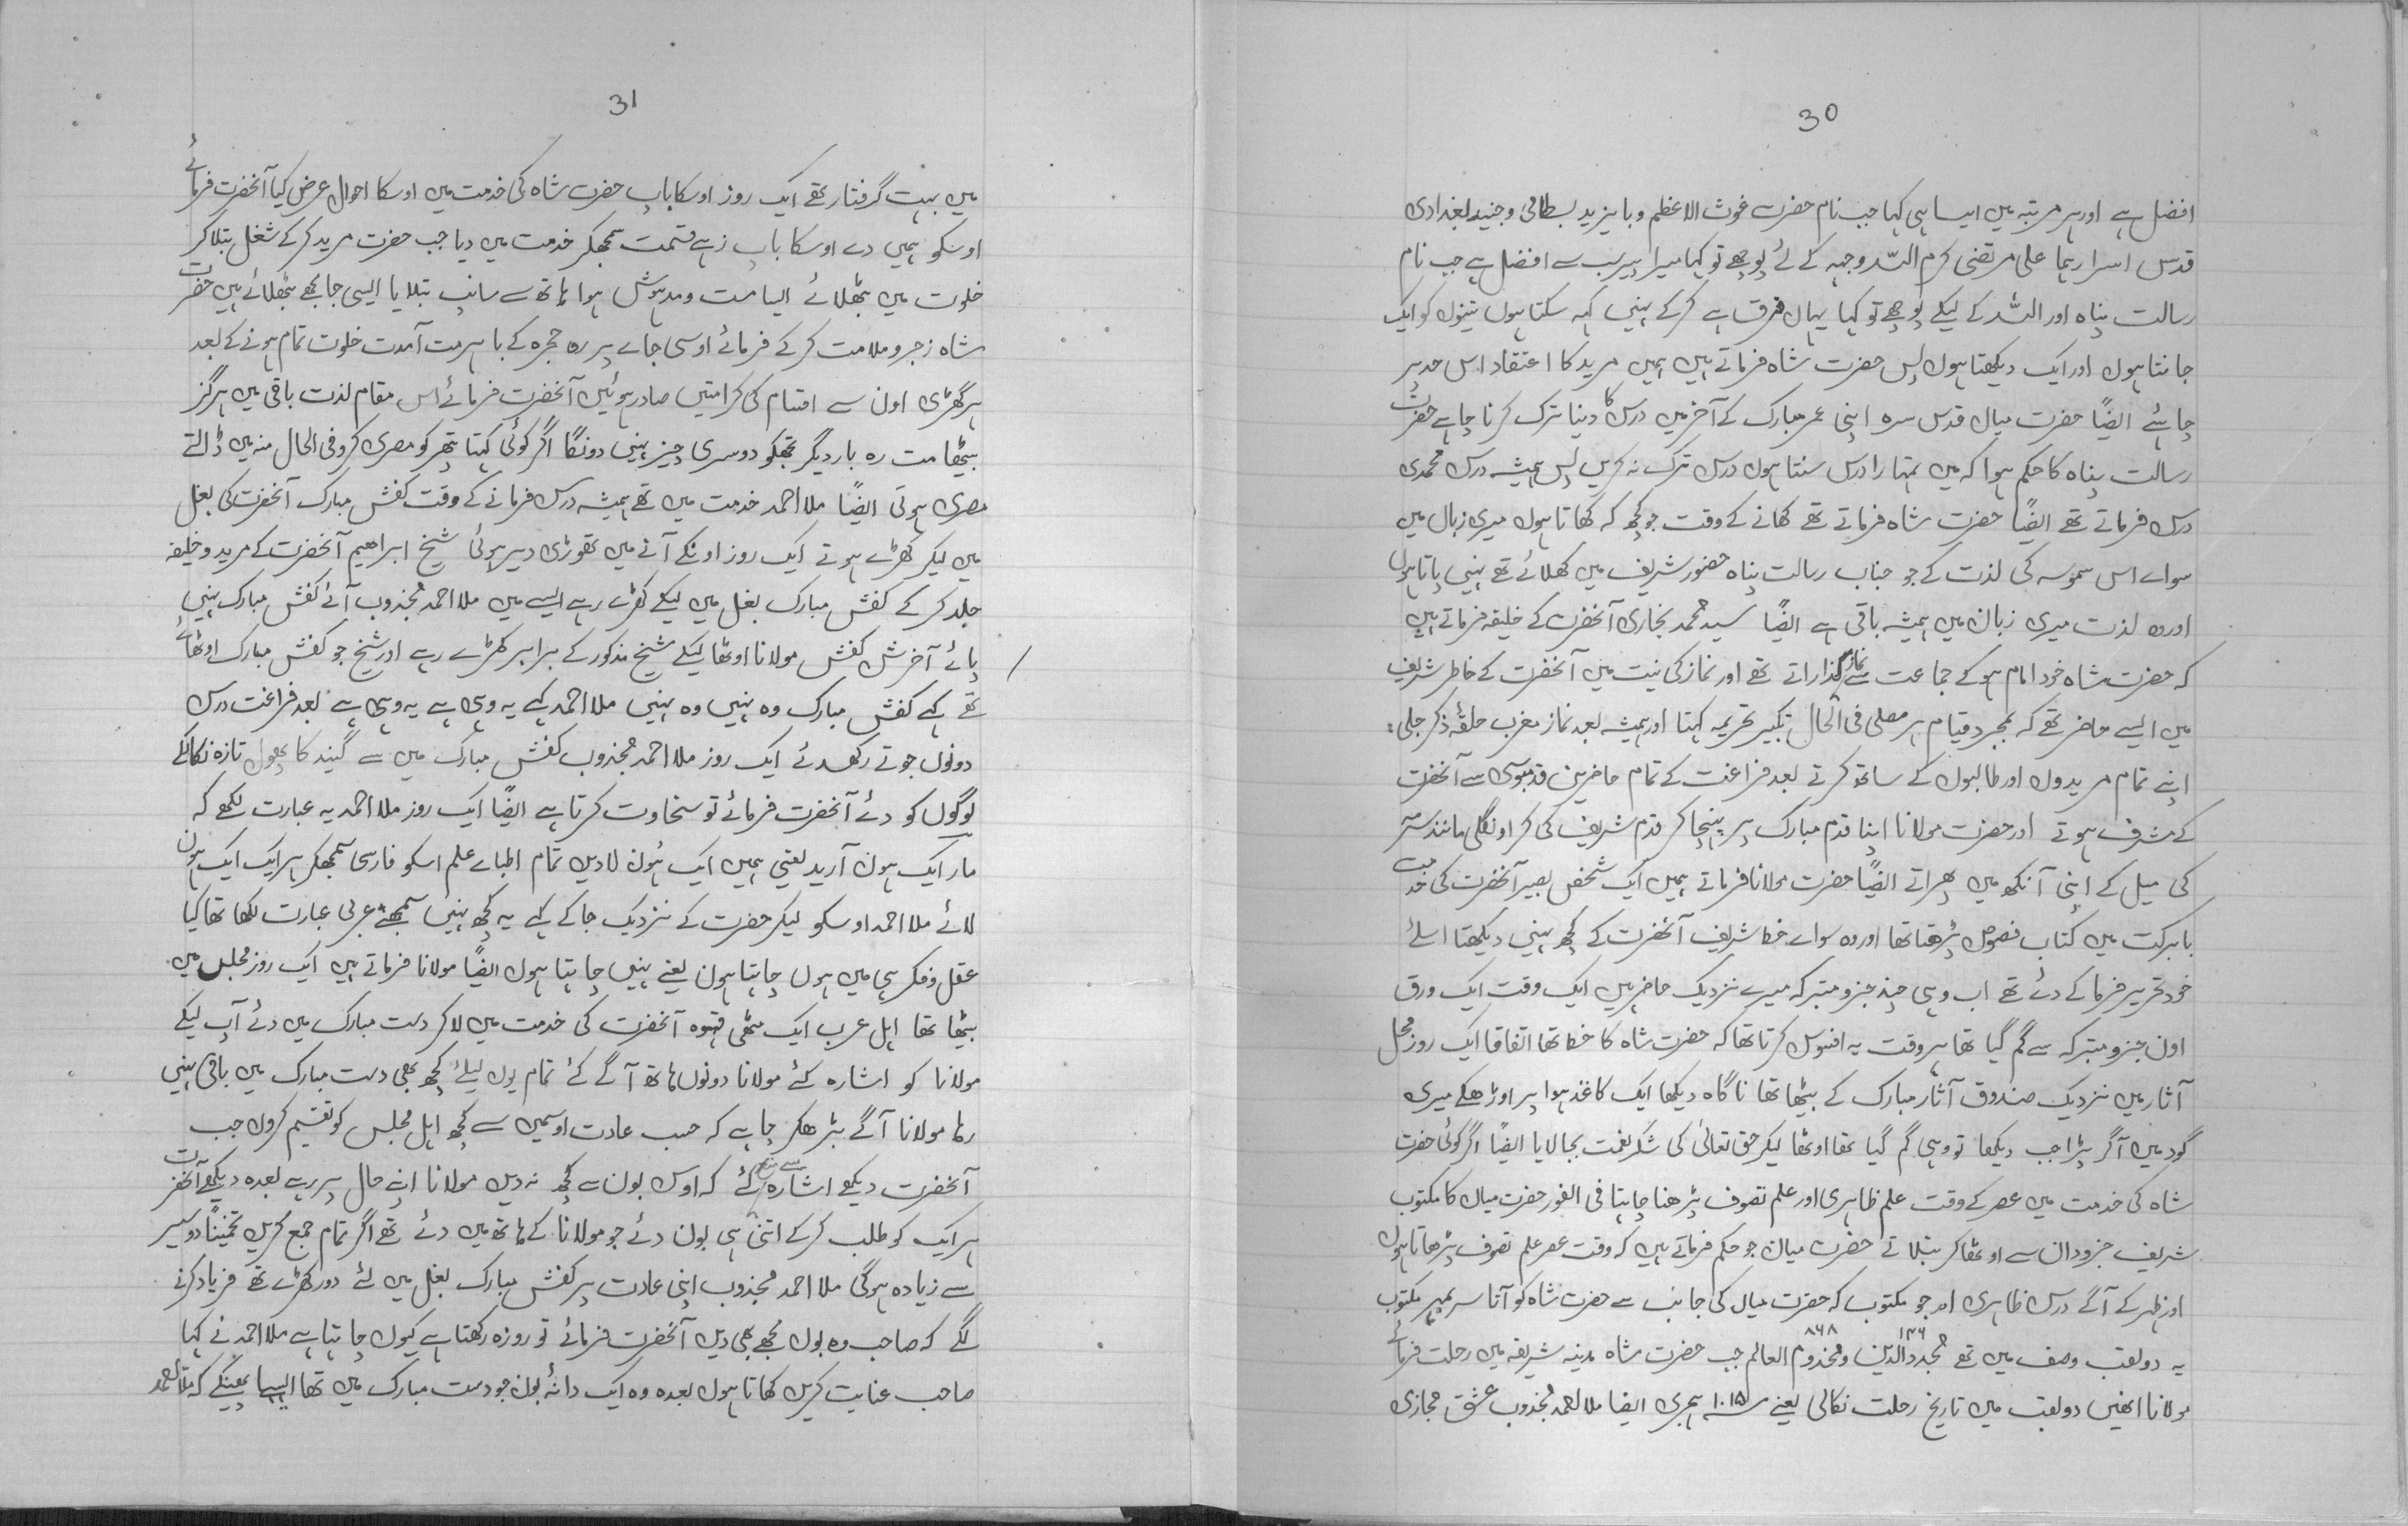 30
افضل ہے اور ہر مرتبہ میں ایسا ہی کہا جب نام حضرت غوث الاعظم و بایزید بسطامی و جنید بغدادی
قدس اسرارہما علی مرتضی کرم اللہ وجہہ کے لئے پوچھے تو کہا میرا پیر سب سے افضل ہے جب نام
رسالت پناہ اور اللہ کے لیکے پوچھے تو کہا یہاں فرق ہے کرکے نہیں کہہ سکتا ہوں تینوں کو ایک
جانتا ہوں اور ایک دیکھتا ہوں پس حضرت شاہ فرماتے ہیں ہمیں مرید کا اعتقاد اس حد پر
چاہئے ایضًا حضرت میاں قدس سرہ اپنی عمر مبارک کے آخر میں درس کا دینا ترک کرنا چاہے حضرت
رسالت پناہ کا حکم ہوا کہ میں تمہارا درس سنتا ہوں درس ترک نہ کریں پس ہمیشہ درس محمدی
درس فرماتے تھے ایضًا حضرت شاہ فرماتے تھے کھانے کے وقت جو کچھ کہ کھاتا ہوں میری زباں میں
سواے اس سموسہ کی لذت کے جو جناب رسالت پناہ حضور شریف میں کھلائے تھے نہیں پاتا ہوں
اور وہ لذت میری زبان میں ہمیشہ باقی ہے ایضًا سید محمد بخاری آنحضرت کے خلیفہ فرماتے ہیں
کہ حضرت شاہ خود امام ہو کے جماعت سے نماز گذاراتے تھے اور نماز کی نیت میں آنحضرت کے خاطر شریف
میں ایسے حاضر تھے کہ بمجرد قیام بر مصلی فی الحال تکبیر تحریمہ کہتا اور ہمیشہ بعد نماز مغرب حلقۂ ذکر جلی
اپنے تمام مریدوں اور طالبوں کے ساتھ کرتے بعد فراغت کے تمام حاضرین قدمبوسی سے آنحضرت
کے مشرف ہوتے اور حضرت مولانا اپنا قدم مبارک پر پہنچا کر قدم شریف کی کر اونگلی مانند سرمہ
کی میل کے اپنی آنکھ میں پھراتے ایضًا حضرت مولانا فرماتے ہمیں ایک شخص بصیر آنحضرت کی خدمت
بابرکت میں کتاب فصوص پڑھتا تھا اور وہ سواے خط شریف آنحضرت کے کچھ نہیں دیکھتا اسلئے
خود تحریر فرما کے دئے تھے اب وہی چند جزو متبرکہ میرے نزدیک حاضر ہیں ایک وقت ایک ورق
اون جزو متبرکہ سے گم گیا تھا ہر وقت یہ افسوس کرتا تھا کہ حضرت شاہ کا خط تھا اتفاقا ایک روز محل
آثار میں نزدیک صندوق آثار مبارک کے بیٹھا تھا ناگاہ دیکھا ایک کاغذ ہوا پر اوڑھکے میری
گود میں آگر پڑا جب دیکھا تو وہی گم گیا تھا اوٹھا لیکر حق تعالیٰ کی شکر نعمت بجا لایا ایضًا اگر کوئی حضرت
شاہ کی خدمت میں عصر کے وقت علم ظاہری اور علم تصوف پڑھنا چاہتا فی الفور حضرت میاں کا مکتوب
شریف جزودان سے اوٹھا کر بتلاتے حضرت میاں جو حکم فرماتے ہیں کہ وقت عصر علم تصوف پڑھاتا ہوں
اور ظہر کے آگے درس ظاہری اور جو مکتوب کہ حضرت میاں کی جانب سے حضرت شاہ کو آتا سر مہر مکتوب
یہ دو لقب وصف میں تھے مجدد الدین و مخدوم العالم جب حضرت شاہ مدینہ شریفہ میں رحلت فرمائے
۱۴۶ ۸۶۸
مولانا انھیں دو لقب میں تاریخ رحلت نکالی یعنے سنہ ۱۰۱۵ ہجری ایضا ملا احمد مجذوب عشق مجازی
31
میں بہت گرفتار تھے ایک روز اوسکا باپ حضرت شاہ کی خدمت میں اوسکا احوال عرض کیا آنحضرت فرمائے
اوسکو ہمیں دے اوسکا باپ زہے قسمت سمجھکر خدمت میں دیا جب حضرت مرید کرکے شغل بتلا کر
خلوت میں بٹھلائے ایسا مست و مدہوش ہوا ہاتھ سے سانپ بتلایا ایسی جا مجھے بٹھلائے ہیں حضرت
شاہ زجر و ملامت کرکے فرمائے اوسی جاے پر رہ حجرہ کے باہر مت آمدت خلوت تمام ہونے کے بعد
ہر گھڑی اون سے اقسام کی کرامتیں صادر ہوئیں آنحضرت فرمائے اس مقام لذت باقی میں ہرگز
بیٹھا مت رہ بار دیگر تجھکو دوسری چیز نہیں دونگا اگر کوئی کہتا پتھر کو مصری کرو فی الحال منہ میں ڈالتے
مصری ہوتی ایضًا ملا احمد خدمت میں تھے ہمیشہ درس فرمانے کے وقت کفش مبارک آنحضرت کی بغل
میں لیکر کھڑے ہوتے ایک روز اونکے آنے میں تھوڑی دیر ہوئی شیخ ابراھیم آنحضرت کے مرید و خلیفہ
جلد کرکے کفش مبارک بغل میں لیکے کھڑے رہے ایسے میں ملا احمد مجذوب آئے کفش مبارک نہیں
پائے آخرش کفش مولانا اوٹھا لیکے شیخ مذکور کے برابر کھڑے رہے اور شیخ جو کفش مبارک اوٹھائے
تھے کہے کفش مبارک وہ نہیں وہ نہیں ملا احمد کہے یہ وہی ہے یہ وہی ہے بعد فراغت درس
دونوں جوتے رکھدئے ایک روز ملا احمد مجذوب کفش مبارک میں سے گیند کا پھول تازہ نکالکے
لوگوں کو دئے آنحضرت فرمائے تو سخاوت کرتا ہے ایضًا ایک روز ملا احمد یہ عبارت لکھے کہ
مار ایک ہون آرید یعنی ہمیں ایک ہُون لادیں تمام اطباے علم اسکو فارسی سمجھکر ہر ایک ایک ہون
لائے ملا احمد اوسکو لیکر حضرت کے نزدیک جا کے کہے یہ کچھ نہیں سمجھے عربی عبارت لکھا تھا کیا
عقل و فکر ہی میں ہوں چاہتا ہون یعنے نہیں چاہتا ہوں ایضًا مولانا فرماتے ہیں ایک روز مجلس میں
بیٹھا تھا اہل عرب ایک مٹھی قہوہ آنحضرت کی خدمت میں لا کر دست مبارک میں دئے آپ لیکے
مولانا کو اشارہ کئے مولانا دونوں ہاتھ آگے کئے تمام بوں لیلئے کچھ بھی دست مبارک میں باقی نہیں
رہا مولانا آگے بڑھکر چاہے کہ حسب عادت اوسمیں سے کچھ اہل مجلس کو تقسیم کروں جب
آنحضرت دیکھے اشارہ سے منع کئے کہ اوس بون سے کچھ نہ دیں مولانا اپنے حال پر رہے بعدہ دیکھے آنحضرت
ہر ایک کو طلب کرکے اتنی ہی بون دئے جو مولانا کے ہاتھ میں دئے تھے اگر تمام جمع کریں تخمینًا دو سیر
سے زیادہ ہوگی ملا احمد مجذوب اپنی عادت پر کفش مبارک بغل میں لئے دور کھڑے تھے فریاد کرنے
لگے کہ صاحب وہ بوں مجھے بھی دیں آنحضرت فرمائے تو روزہ رکھتا ہے کیوں چاہتا ہے ملا احمد نے کہا
صاحب عنایت کریں کھاتا ہوں بعدہ وہ ایک دانۂ بون جو دست مبارک میں تھا ایسا پھینکے کہ ملا احمد